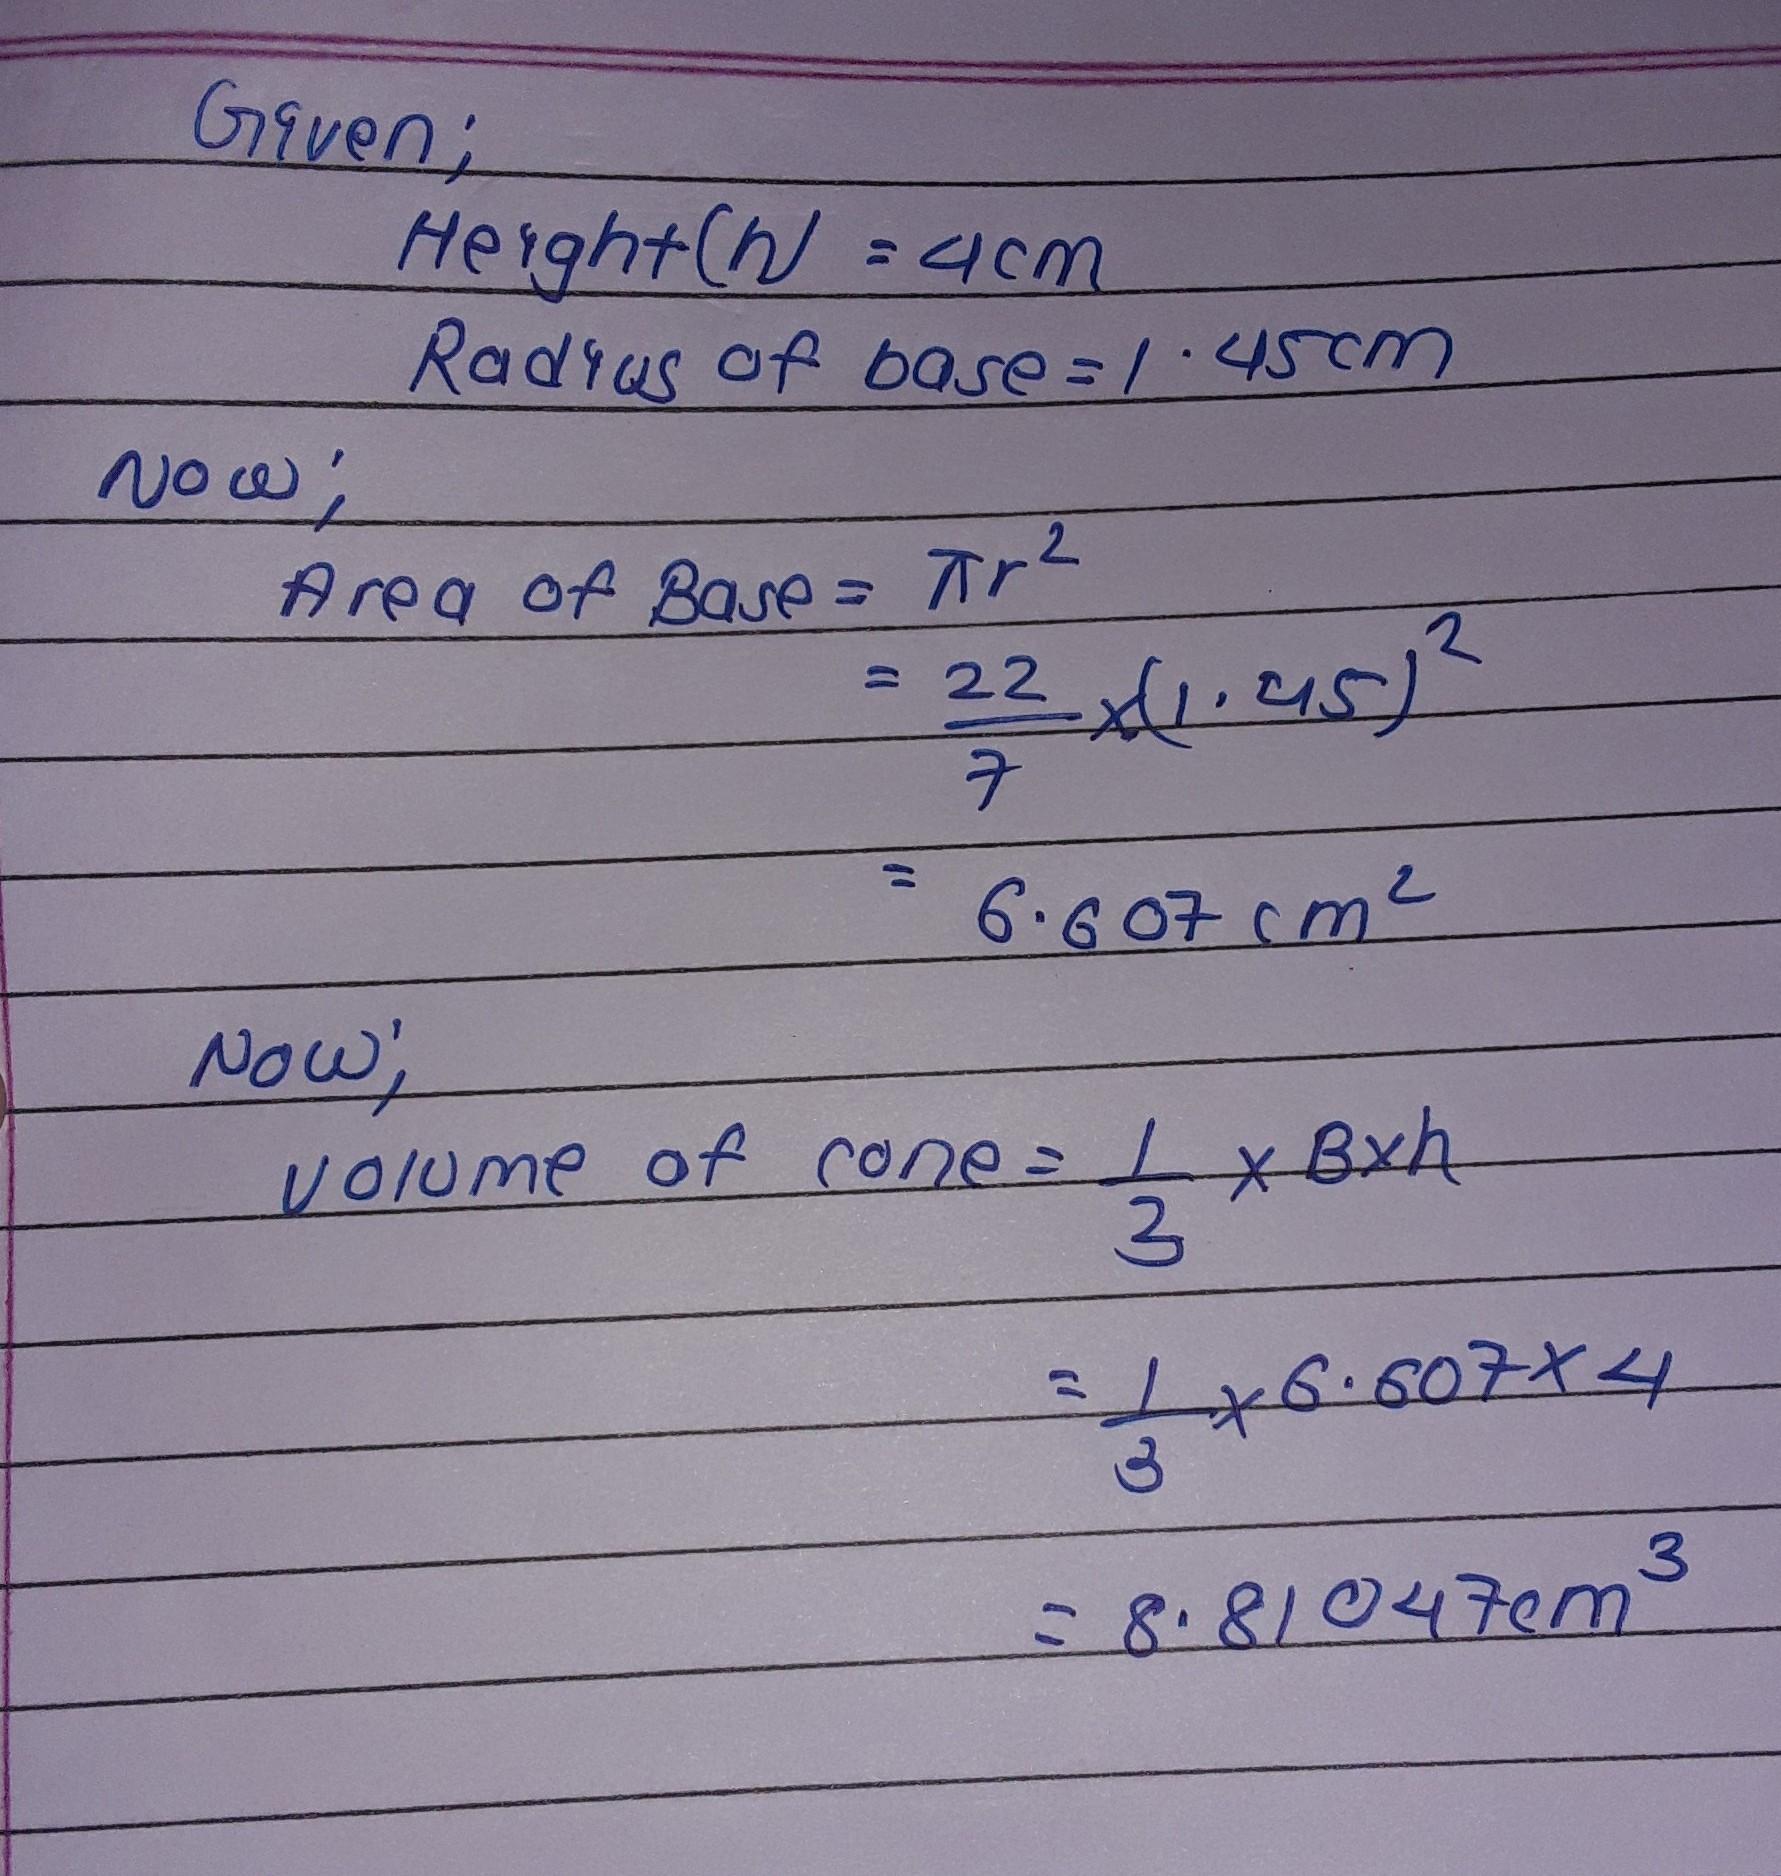 Given;
Height(h) = 4cm
Radius of base = 1.45cm
Now;
Area of Base = πr²
= 22/7 x(1.45)²
= 6.607 cm²
Now;
volume of cone = 1/3 x Bxh
= 1/3 x 6.607 x 4
= 8.81047cm³